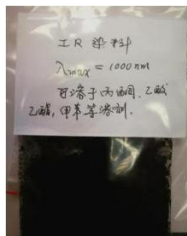 IR 染料
λmax = 1000nm
可溶于丙酮、乙酸
乙酯,甲苯等溶剂.